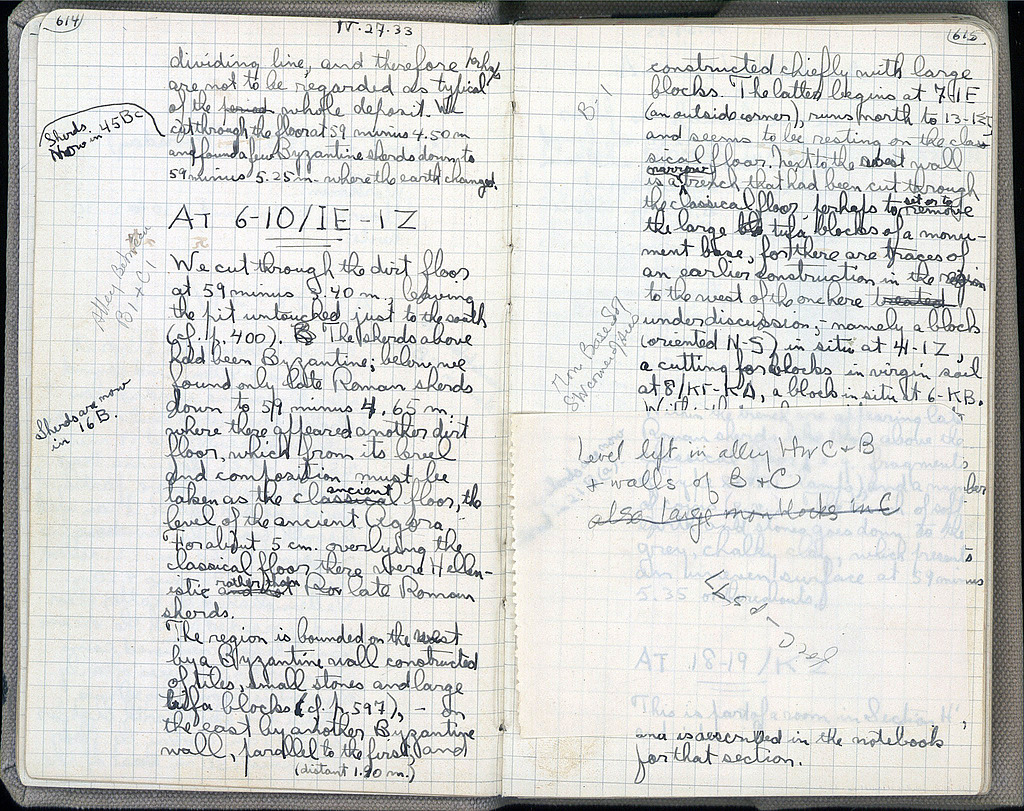 614
IV-27-33
dividing line, and therefore perhaps
are not to be regarded as typical
of the period whole deposit. We
cut through the floor at 59 minus 4.50 m
and found a few Byzantine sherds down to
59 minus 5.25 m. where the earth changed.
Sherds
now in 45 B
AT 6-10/IE-IZ
Alley between
B1 + C1
We cut through the dirt floor
at 59 minus 40 m, leaving
the pit untouched just to the south
(cf. p. 400). The sherds above
had been Byzantine; below, we
found only late Roman sherds
down to 59 minus 4.65 m.
where there appeared another dirt
floor, which from its level
and composition must be
taken as the classical ancient floor, the
level of the ancient Agora.
For about 5 cm. overlying the
classical floor there were Hellen-
istic and not rather than Ro late Roman
sherds.
Sherds are now
in 16 B.
The region is bounded on the west
by a Byzantine wall constructed
of tiles, small stones and large
tufa blocks (cf. p. 597), – on
the east by another Byzantine
wall, parallel to the first, and
(distant 1.90 m.)
615
B-1
constructed chiefly with large
blocks. The latter begins at 7/IE
(an outside corner), runs north to 13-
and seems to be resting on the clas-
sical floor. Next to the west wall
is a narrow trench that had been cut through
the classical floor, perhaps to get at to remove
the large tufa blocks of a monu-
ment base, for there are traces of
an earlier construction in the region
to the west of the one here treated
under discussion, – namely a block
(oriented N-S) in situ at 4-IZ,
a cutting for blocks in virgin soil
at 8/KΓ-KΔ, a block in situ at 6-KB.
Mon Base
Level left in alley HW C+B
+ walls of B+C
also large mon blocks in C
Roman
above the
fragments
of soft
goes down to the
grey, chalky clay, which presents
an uneven surface at 59 minus
5.35
AT 18-19/K
This is part of a room in Section H',
and is described in the notebook
for that section.